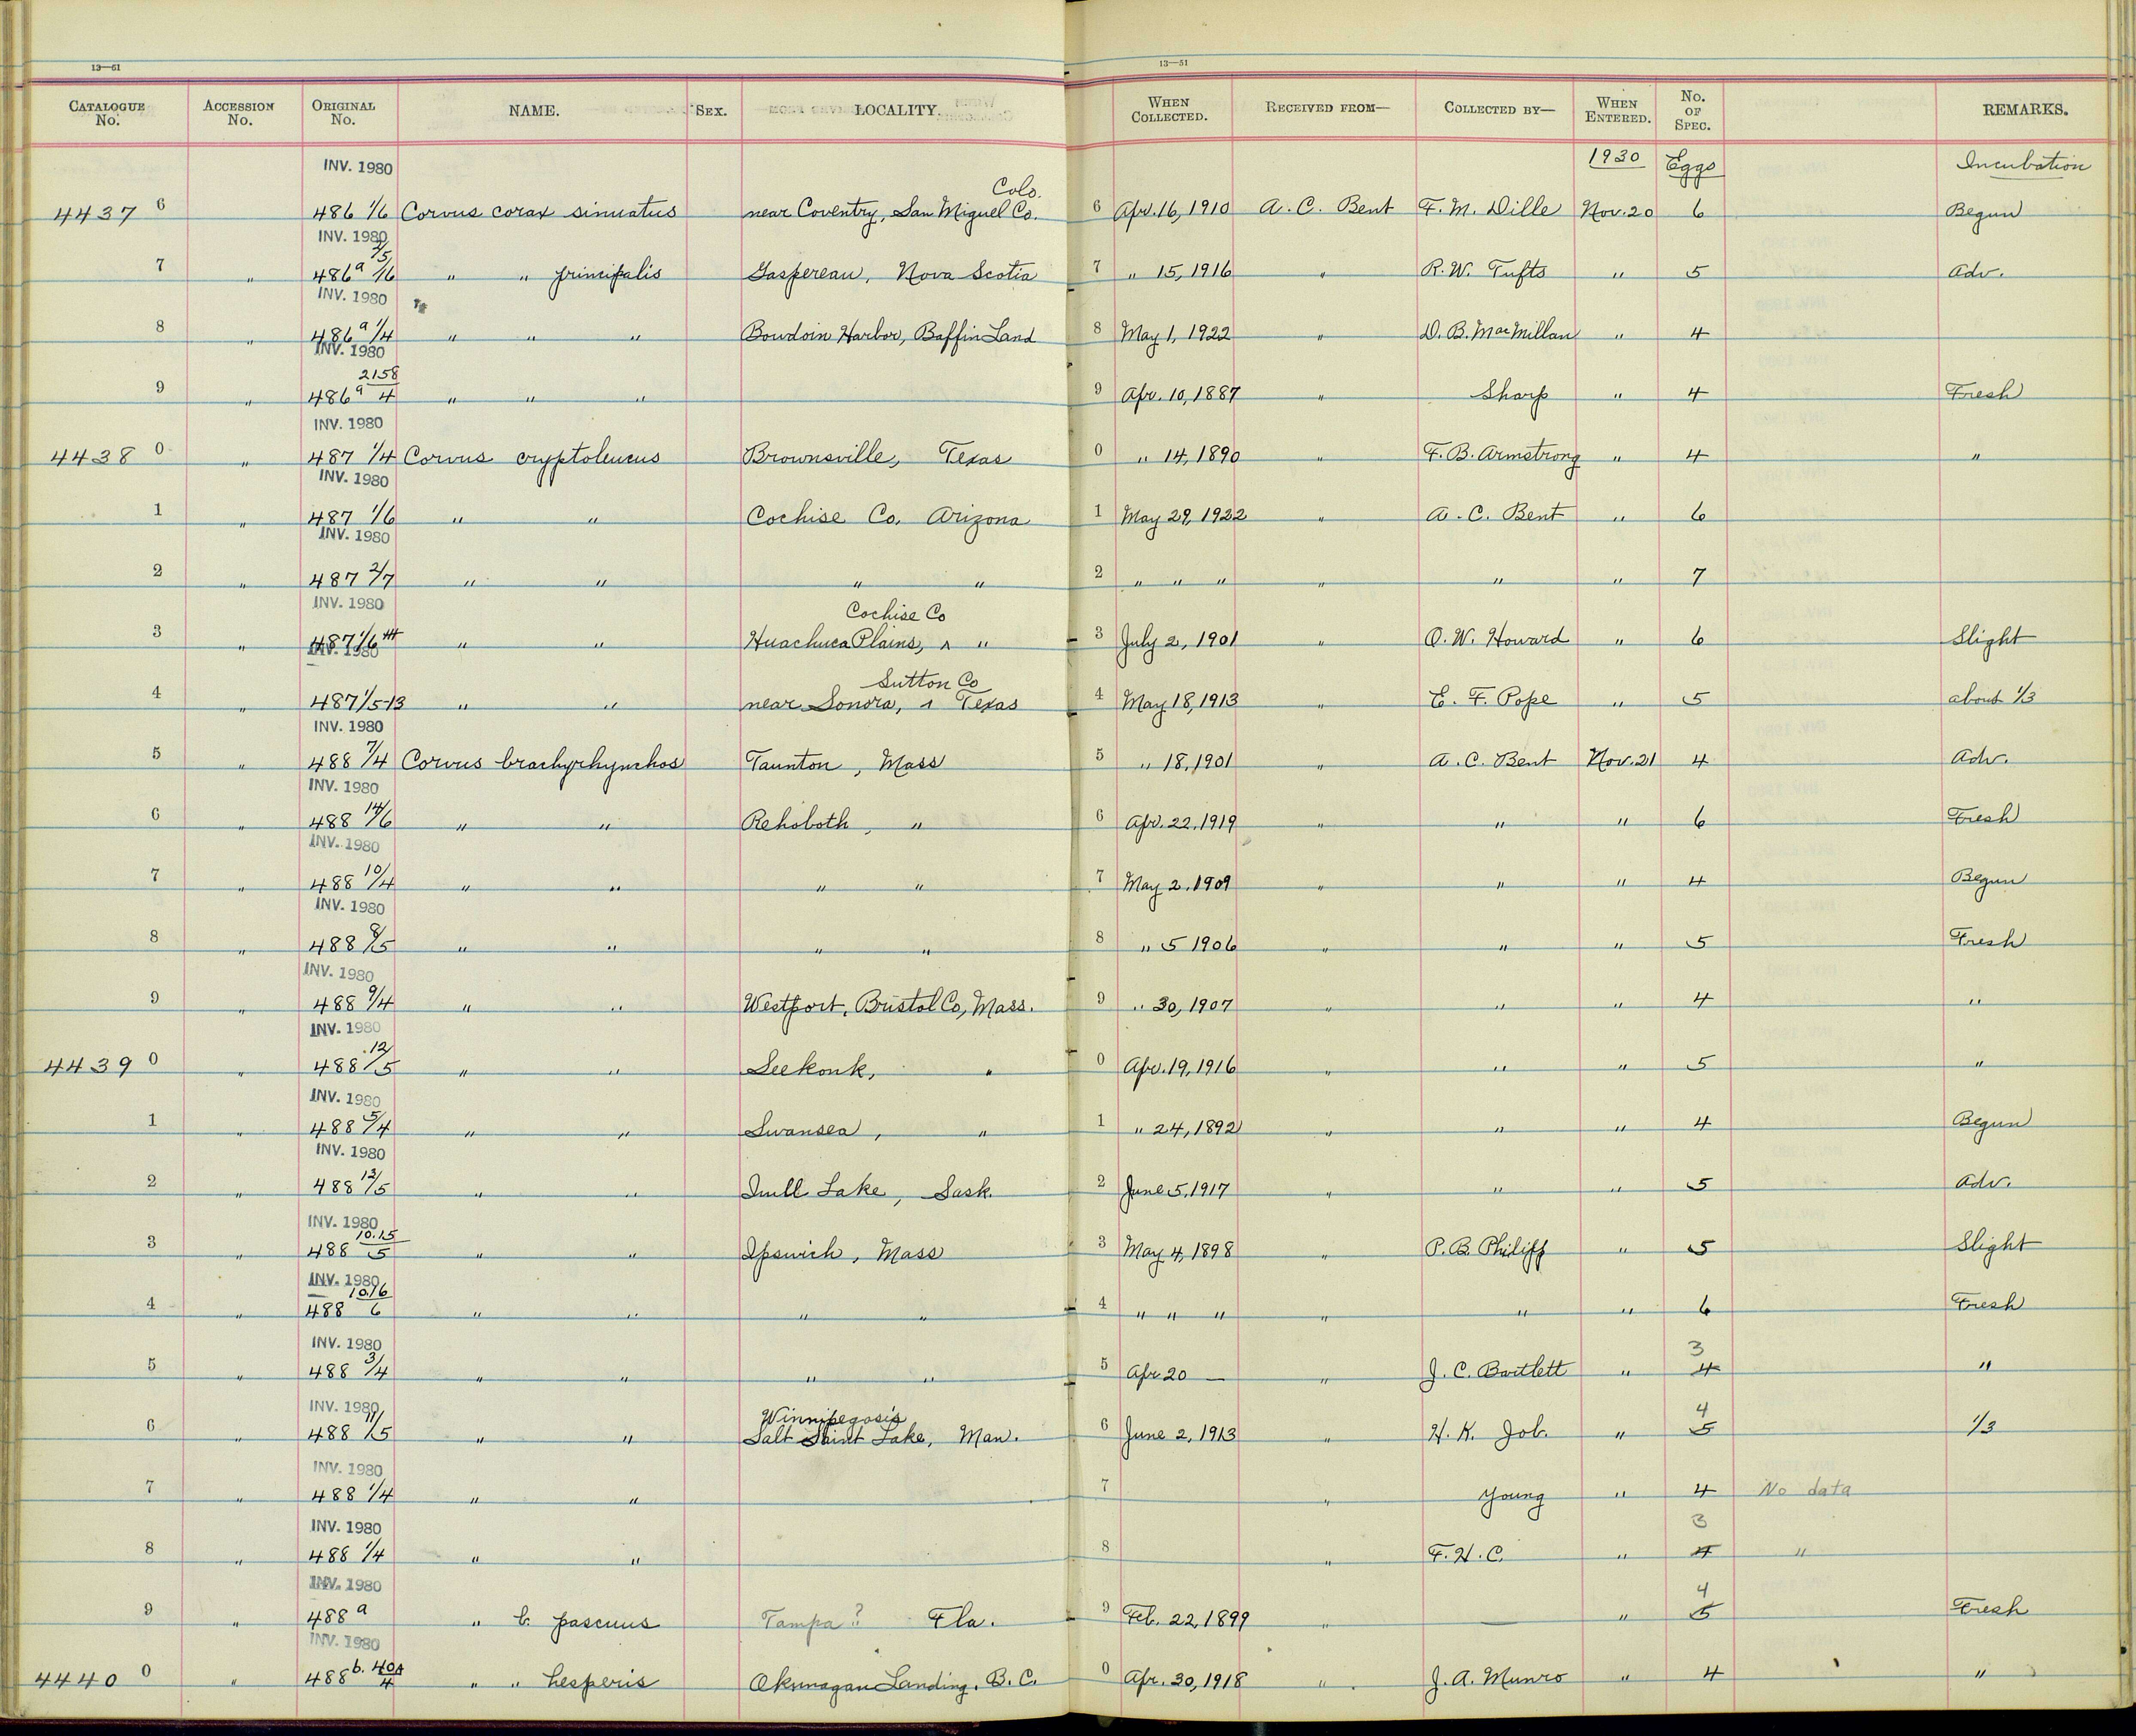 13—51 13—51
CATALOGUE No. ACCESSION No. ORIGINAL No. NAME. SEX. LOCALITY. WHEN COLLECTED. RECEIVED FROM— COLLECTED BY— WHEN ENTERED. No. OF SPEC. REMARKS.
INV. 1980 1930 Eggs Incubation
Colo.
4437 6 486 1/6 Corvus corax sinuatus near Coventry, San Miguel Co. 6 Apr. 16, 1910 A. C. Bent F. M. Dille Nov. 20 6 Begun
INV. 1980
7 " 486a 2/5/16 " " principalis Gaspereau, Nova Scotia 7 " 15, 1916 " R. W. Tufts " 5 Adv.
INV. 1980
8 " 486a 1/4 " " " Bowdoin Harbor, Baffin Land 8 May 1, 1922 " D. B. MacMillan " 4
INV. 1980
9 " 486a 2158/4 " " " 9 Apr. 10, 1887 " Sharp " 4 Fresh
INV. 1980
4438 0 " 487 1/4 Corvus cryptoleucus Brownsville, Texas 0 " 14, 1890 " F. B. Armstrong " 4 "
INV. 1980
1 " 487 1/6 " " Cochise Co. Arizona 1 May 29, 1922 " A. C. Bent " 6
INV. 1980
2 " 487 2/7 " " " " 2 " " " " " " 7
INV. 1980
Cochise Co
3 " 487 1/6 " " Huachuca Plains, ^ " 3 July 2, 1901 " O. W. Howard " 6 Slight
INV. 1980
Sutton Co
4 " 487 1/5-13 " " near Sonora, ^ Texas 4 May 18, 1913 " E. F. Pope " 5 about 1/3
INV. 1980
5 " 488 7/4 Corvus brachyrhynchos Taunton, Mass 5 " 18, 1901 " A. C. Bent Nov. 21 4 Adv.
INV. 1980
6 " 488 14/6 " " Rehoboth, " 6 Apr. 22, 1919 " " " 6 Fresh
INV. 1980
7 " 488 10/4 " " " " 7 May 2, 1909 " " " 4 Begun
INV. 1980
8 " 488 8/5 " " " " 8 " 5 1906 " " " 5 Fresh
INV. 1980
9 " 488 9/4 " " Westport, Bristol Co, Mass. 9 " 30, 1907 " " " 4 "
INV. 1980
4439 0 " 488 12/5 " " Seekonk, " 0 Apr. 19, 1916 " " " 5 "
INV. 1980
1 " 488 5/4 " " Swansea, " 1 " 24, 1892 " " " 4 Begun
INV. 1980
2 " 488 13/5 " " Lake, Sask. 2 June 5, 1917 " " " 5 Adv.
INV. 1980
3 " 488 10.15/5 " " Ipswich, Mass 3 May 4, 1898 " P. B. Philipp " 5 Slight
INV. 1980
4 " 488 10.16/6 " " " " 4 " " " " " " 6 Fresh
INV. 1980 3
5 " 488 3/4 " " " " 5 Apr 20 — " J. C. Bartlett " 4 "
INV. 1980 Winnipegosis 4
6 " 488 11/5 " " Salt Saint Lake, Man. 6 June 2, 1913 " H. K. Job. " 5 1/3
INV. 1980
7 " 488 1/4 " " 7 " Young " 4 No data
INV. 1980 3
8 " 488 1/4 " " 8 " F. H. C. " 4 "
INV. 1980 4
9 " 488a " b. pascuus Tampa? Fla. 9 Feb. 22, 1899 " — " 5 Fresh
INV. 1980
4440 0 " 488b. 40A/4 " " hesperis Okanagan Landing, B. C. 0 Apr. 30, 1918 " J. A. Munro " 4 "